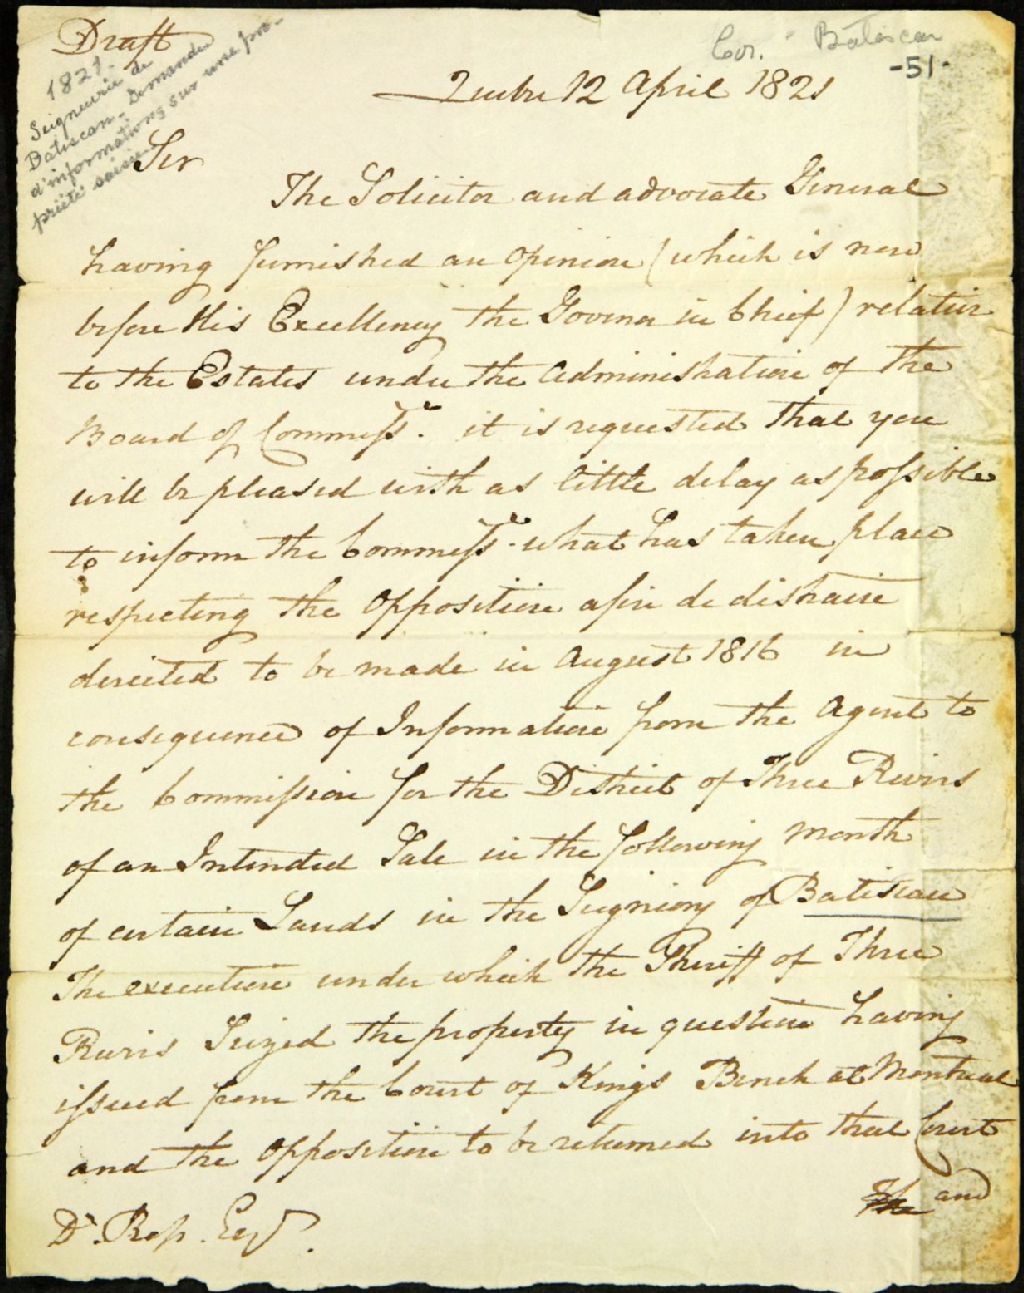 Draft
1821.
Seigneurie de
Batiscan - Demande
d'informations sur une pro-
priété saisie
Cor. Batiscan
-51-
Quebec 12 April 1821
Sir
The Solicitor and advocate General
having furnished an Opinion (which is now
before His Excellency the Govenor in Chief) relative
to the Estates under the Administration of the
Board of Commissrs. it is requested that you
will be pleased with as little delay as possible
to inform the Commissrs. what has taken place
respecting the Opposition afin de distraire
directed to be made in August 1816 in
consequence of Information from the Agent to
the Commission for the District of Three Rivers
of an Intended Sale in the following month
of certain Lands in the Seigniory of Batiscan
The execution under which the Sheriff of Three
Rivers Seized the property in question having
issued from the Court of Kings Bench at Montreal
and the Opposition to be returned into that Court
The and
D. Ross. Esqr.